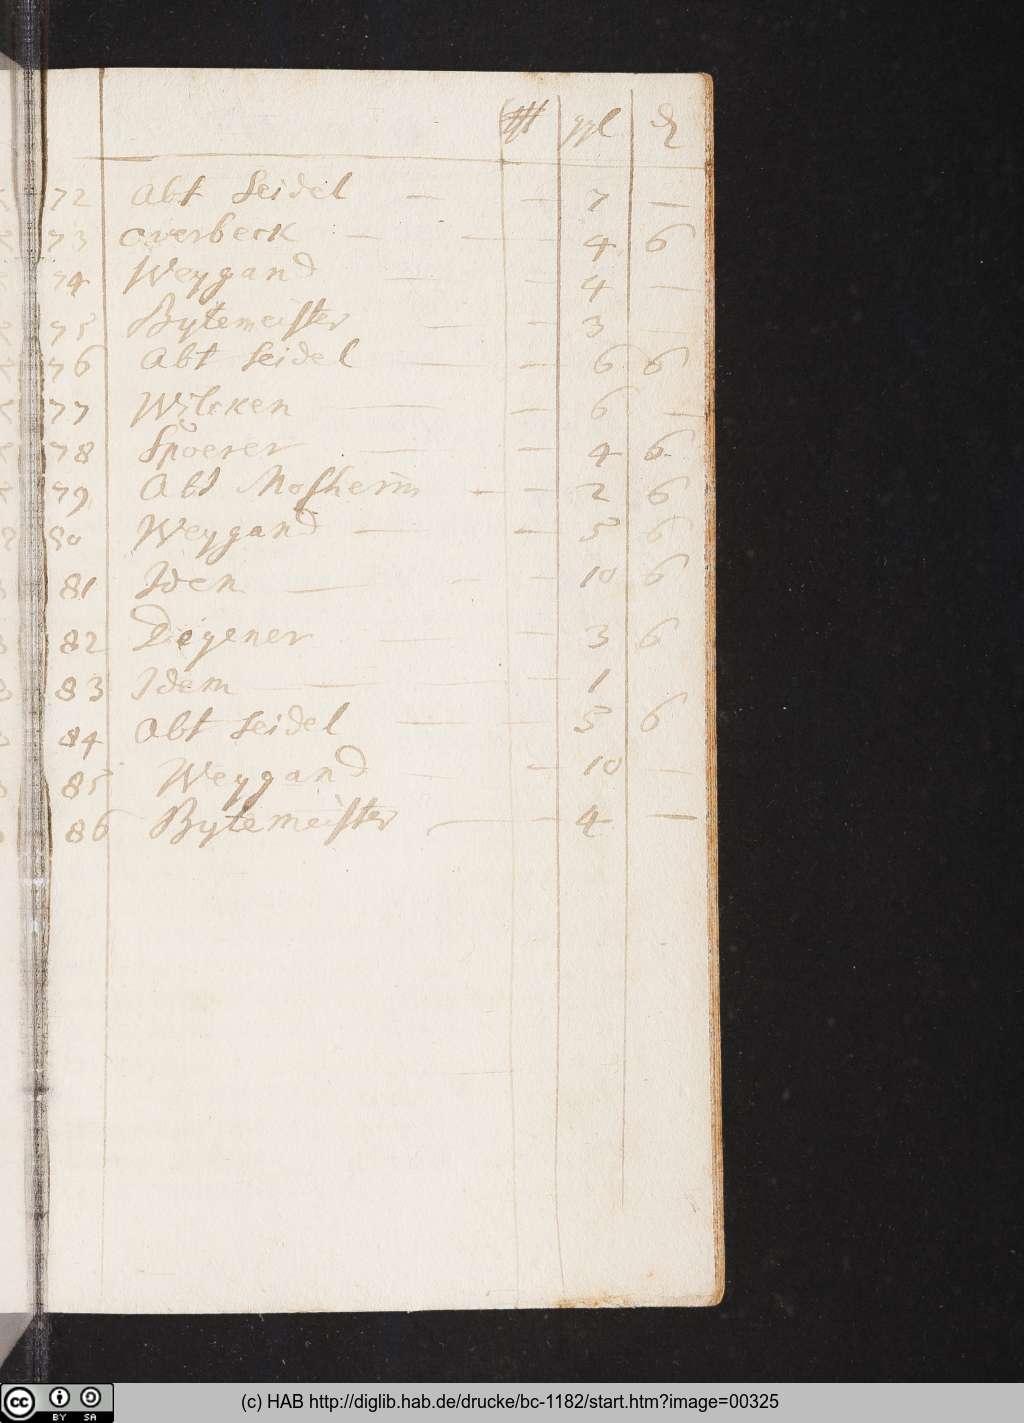 ggl
72 Abt Seidel — — 7 —
73 Overbeck — — 4 6
74 Weygand — — 4 —
75 Bytemeister — — 3 —
76 Abt Seidel — — 6 6
77 Wilcken — — 6 —
78 Spoerer — — 4 6
79 Abt Mosheim — — 2 6
80 Weygand — — 5 6
81 Iden — — 10 6
82 Degener — — 3 6
83 Idem — — 1
84 Abt Seidel — — 5 6
85 Weygand — — 10 —
86 Bytemeister — — 4 —
(c) HAB http://diglib.hab.de/drucke/bc-1182/start.htm?image=00325